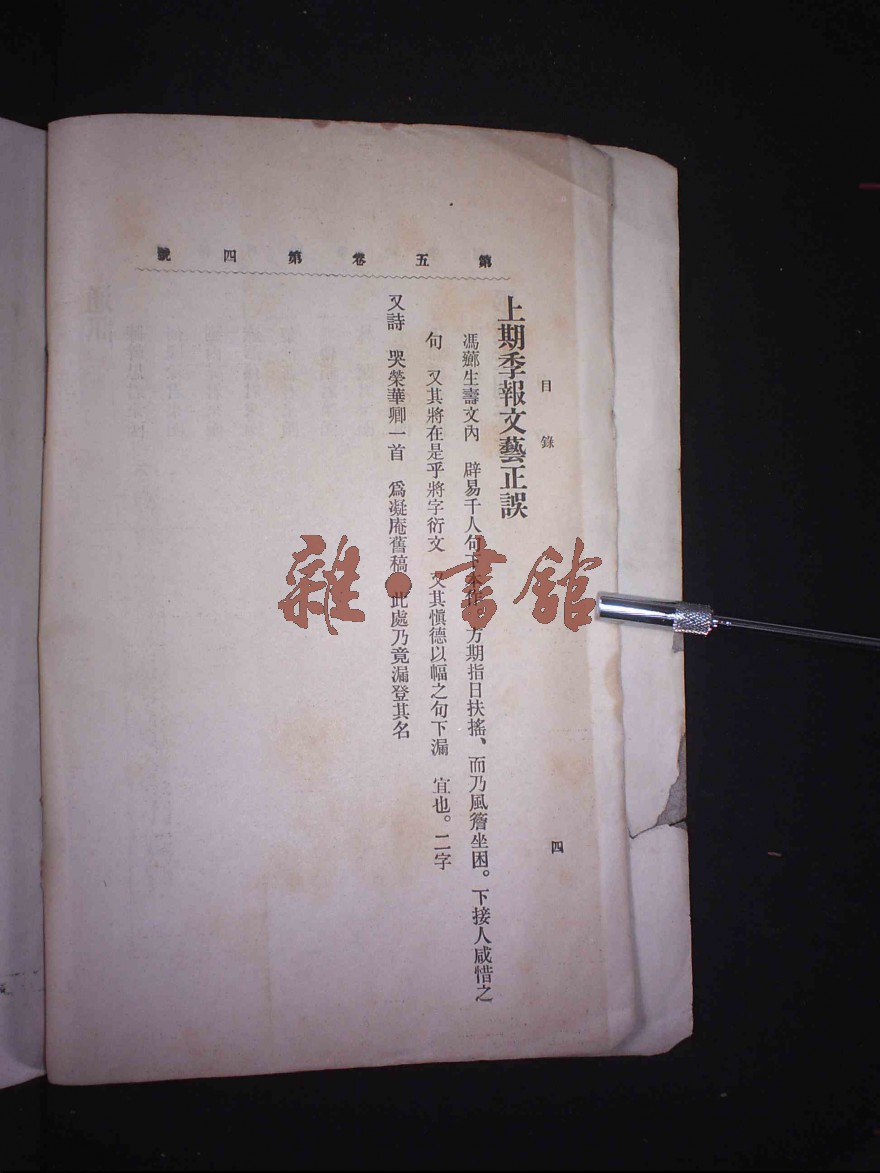 第五卷第四號
目錄
四
上期季報文藝正誤
馮薌生壽文內　辟易千人句下　方期指日扶搖、而乃風簷坐困。下接人咸惜之
句　又其將在是乎將字衍文　又其愼德以幅之句下漏　宜也。二字
又詩　哭榮華卿一首　爲凝庵舊稿　此處乃竟漏登其名
雜·書館